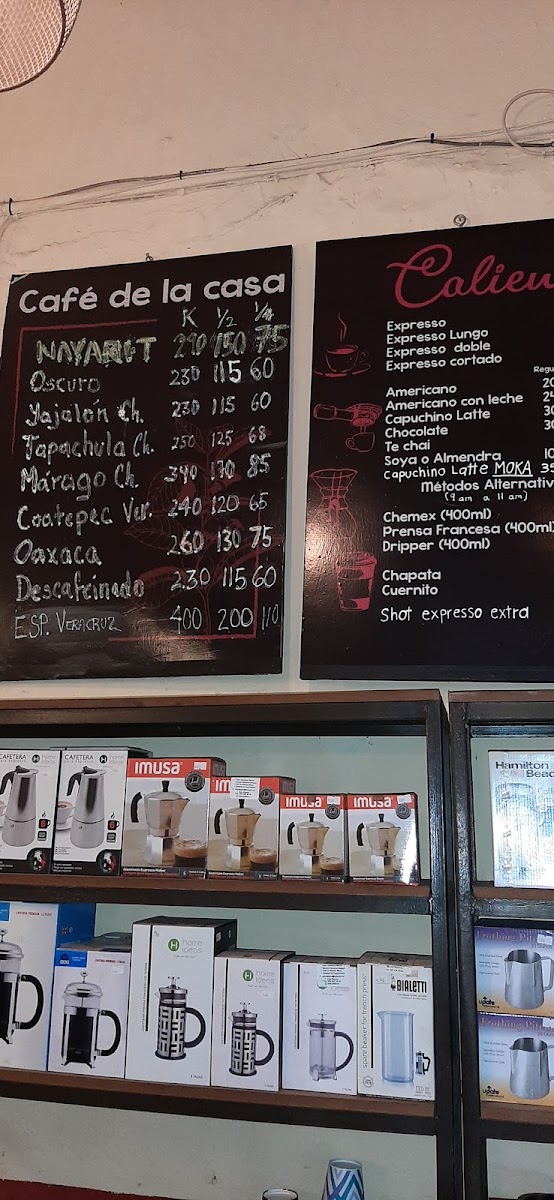 Café de la casa
K ½ ¼
NAYARIT 290 150 75
Oscuro 230 115 60
Yajalón Ch. 230 115 60
Tapachula Ch. 250 125 68
Márago Ch. 340 170 85
Coatepec Ver. 240 120 65
Oaxaca 260 130 75
Descafeinado 230 115 60
ESP. VERACRUZ 400 200 110
Calien
Expresso
Expresso Lungo
Expresso doble
Expresso cortado
Regu
Americano 20
Americano con leche 24
Capuchino Latte 30
Chocolate 30
Te chai
Soya o Almendra 10
Capuchino Latte MOKA 35
Métodos Alternativ
(9 am a 11 am)
Chemex (400ml)
Prensa Francesa (400ml)
Dripper (400ml)
Chapata
Cuernito
Shot expresso extra
CAFETERA
CAFETERA
IMUSA
IMUSA
IMUSA
IMUSA
Hamilton
Beac
home
home
BIALETTI
spare beaker for french press
Frothing Pi
update
update